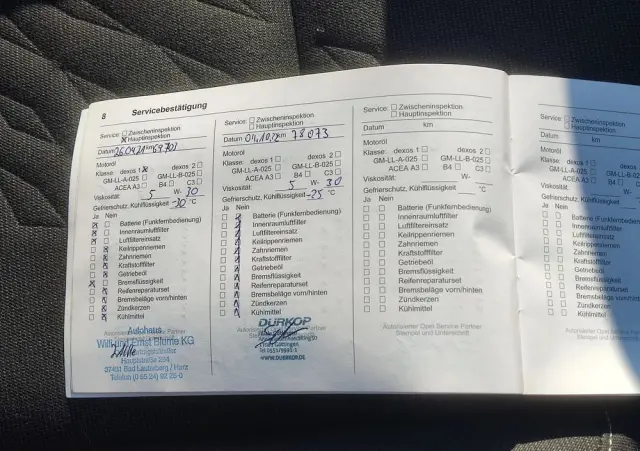 8 Servicebestätigung
Service: Zwischeninspektion
Hauptinspektion
Datum 26.04.21 km 69.701
Motoröl
Klasse: dexos 1 dexos 2
GM-LL-A-025 GM-LL-B-025
ACEA A3 B4 C3
Viskosität: 5 W- 30
Gefrierschutz, Kühlflüssigkeit -30 °C
Ja Nein
Batterie (Funkfernbedienung)
Innenraumluftfilter
Luftfiltereinsatz
Keilrippenriemen
Zahnriemen
Kraftstofffilter
Getriebeöl
Bremsflüssigkeit
Reifenreparaturset
Bremsbeläge vorn/hinten
Zündkerzen
Kühlmittel
Autohaus
Wilh. und Ernst Blume KG
Hauptstraße
37431 Bad Lauterberg / Harz
Telefon (0 55 24)
Service: Zwischeninspektion
Hauptinspektion
Datum 04.10. km 78073
Motoröl
Klasse: dexos 1 dexos 2
GM-LL-A-025 GM-LL-B-025
ACEA A3 B4 C3
Viskosität: 5 W- 30
Gefrierschutz, Kühlflüssigkeit -25 °C
Ja Nein
Batterie (Funkfernbedienung)
Innenraumluftfilter
Luftfiltereinsatz
Keilrippenriemen
Zahnriemen
Kraftstofffilter
Getriebeöl
Bremsflüssigkeit
Reifenreparaturset
Bremsbeläge vorn/hinten
Zündkerzen
Kühlmittel
DÜRKOP
Göttingen
WWW.DUERKOP.DE
Service: Zwischeninspektion
Hauptinspektion
Datum km
Motoröl
Klasse: dexos 1 dexos 2
GM-LL-A-025 GM-LL-B-025
ACEA A3 B4 C3
Viskosität: W-
Gefrierschutz, Kühlflüssigkeit °C
Ja Nein
Batterie (Funkfernbedienung)
Innenraumluftfilter
Luftfiltereinsatz
Keilrippenriemen
Zahnriemen
Kraftstofffilter
Getriebeöl
Bremsflüssigkeit
Reifenreparaturset
Bremsbeläge vorn/hinten
Zündkerzen
Kühlmittel
Autorisierter Opel Service Partner
Stempel und Unterschrift
Service: Zwischeninspektion
Hauptinspektion
Datum km
Motoröl
Klasse: dexos 1 dexos 2
GM-LL-A-025 GM-LL-B-025
ACEA A3 B4
Viskosität: W-
Gefrierschutz, Kühlflüssigkeit
Ja Nein
Batterie (Funkfernbedienung)
Innenraumluftfilter
Luftfiltereinsatz
Keilrippenriemen
Zahnriemen
Kraftstofffilter
Getriebeöl
Bremsflüssigkeit
Reifenreparaturset
Bremsbeläge vorn/hinten
Zündkerzen
Kühlmittel
Autorisierter Opel Service Partner
Stempel und Unterschrift